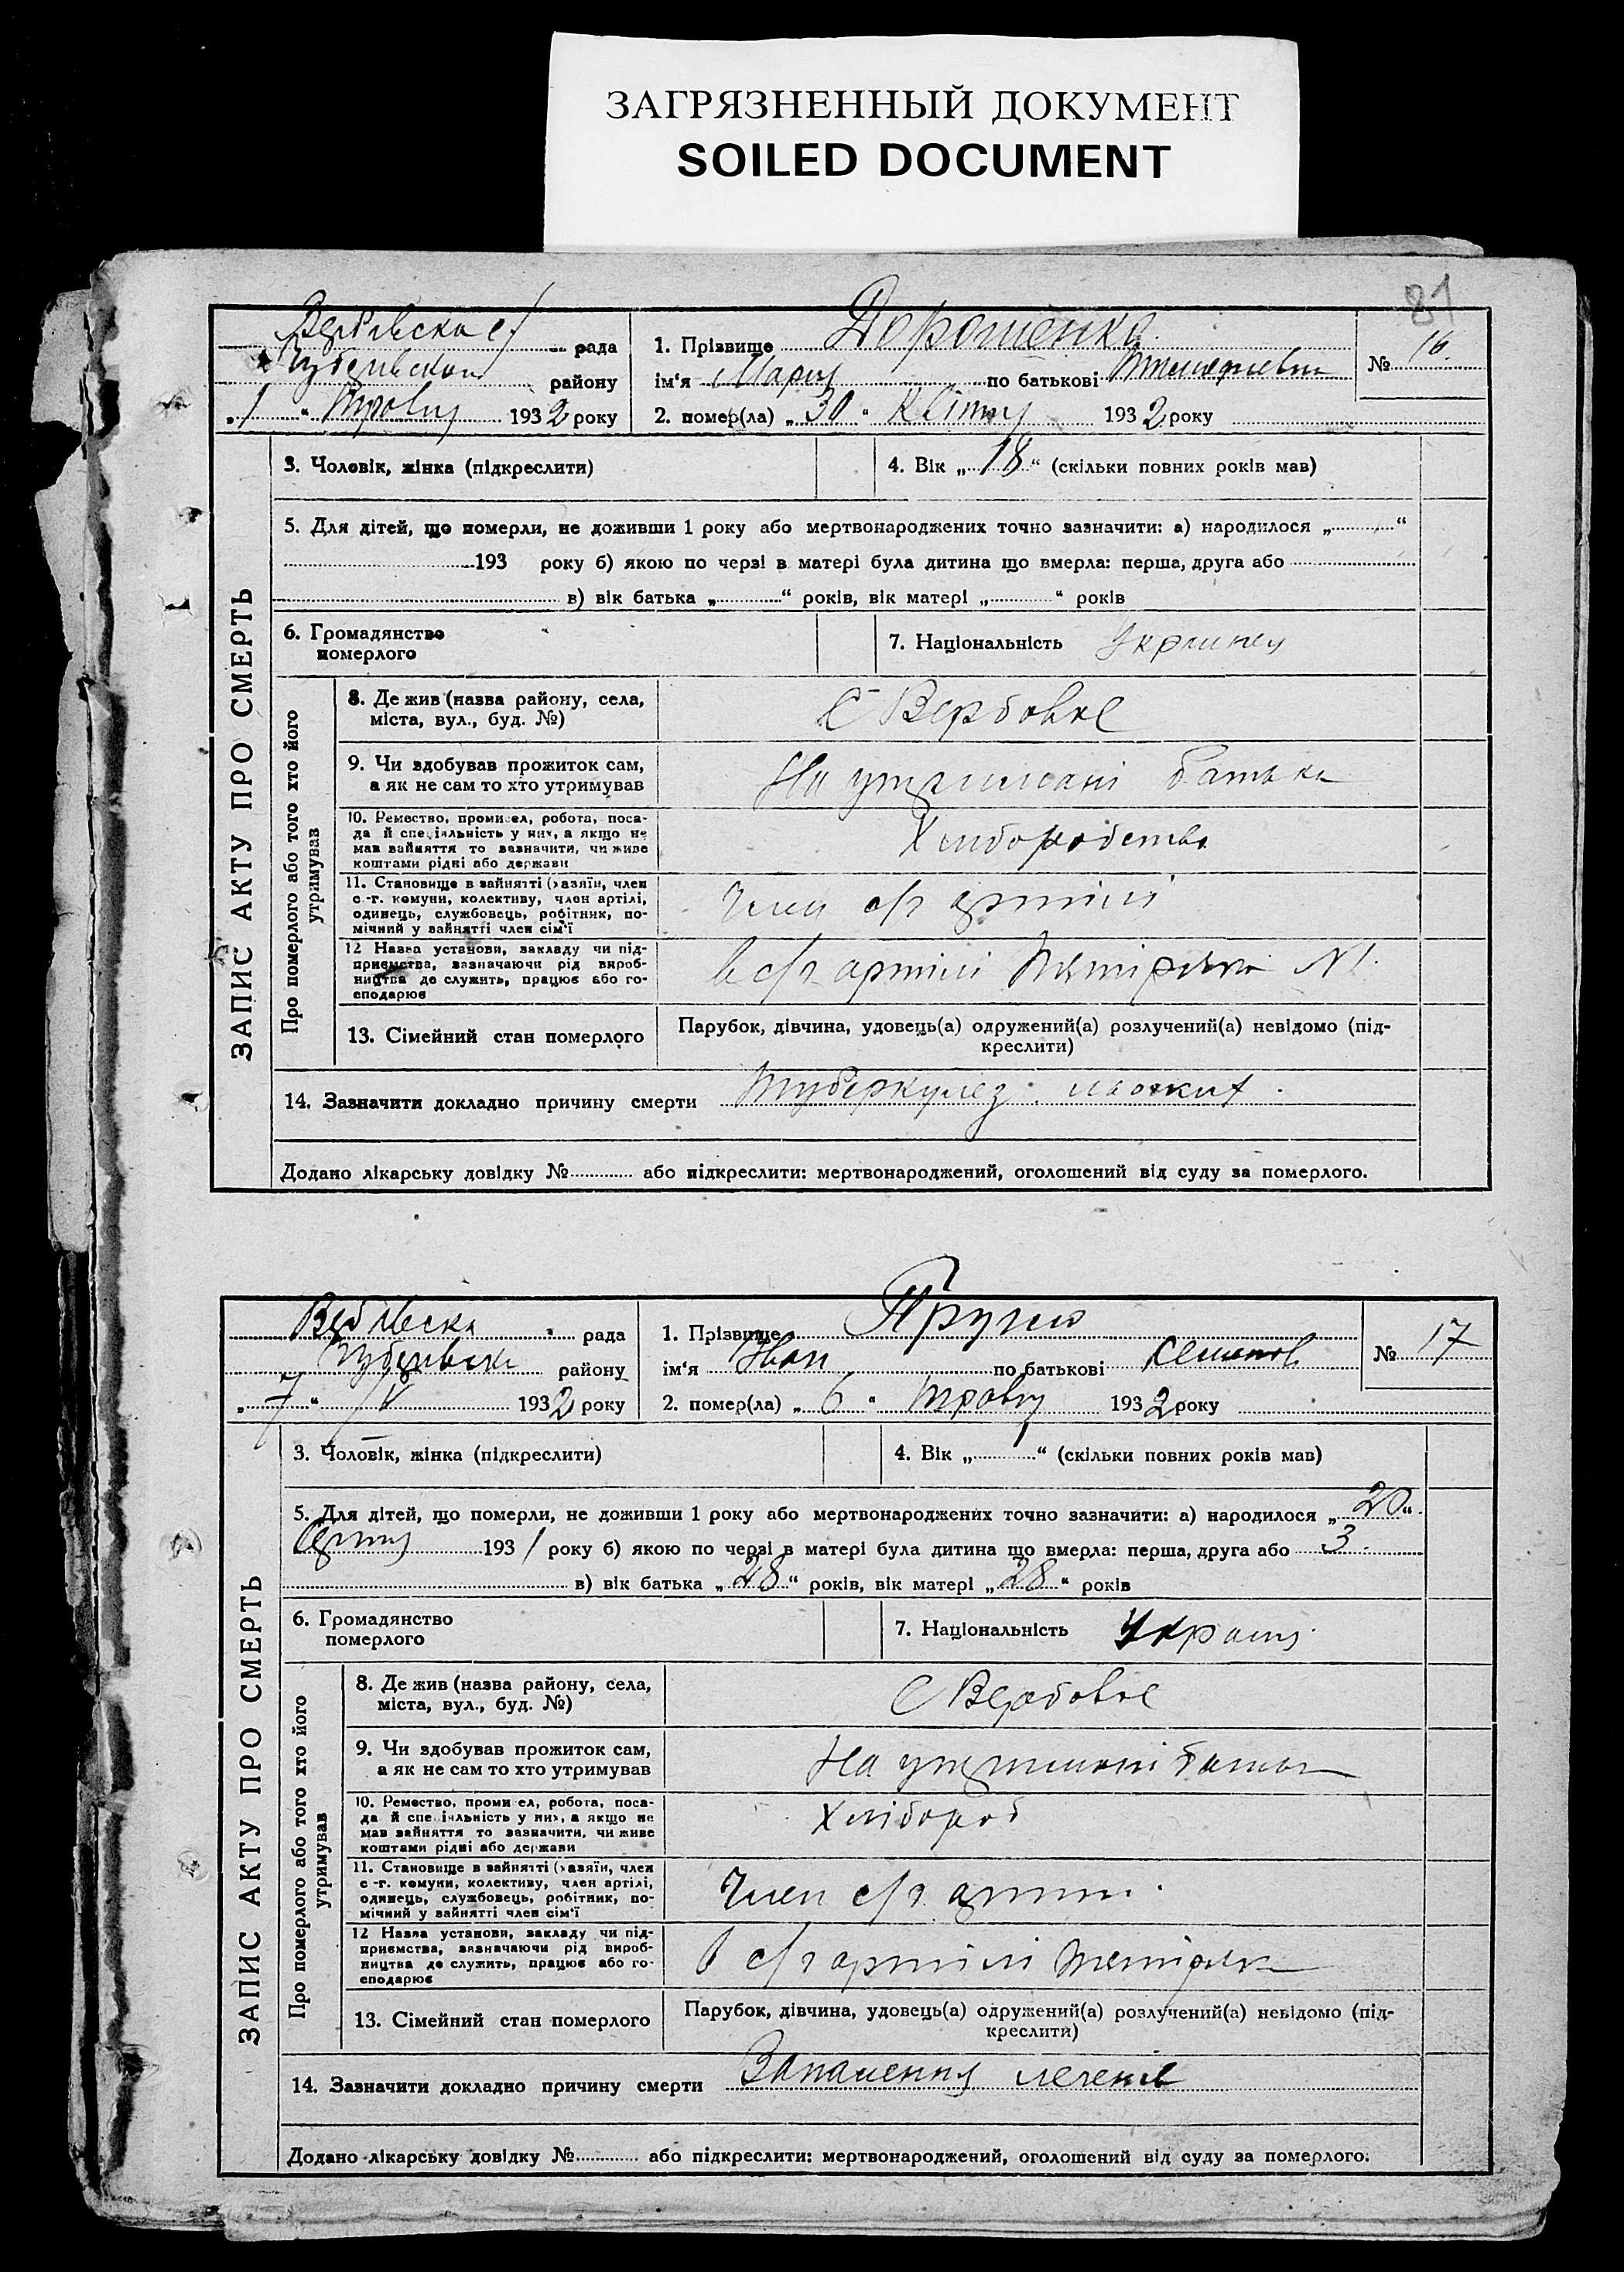 ЗАГРЯЗНЕННЫЙ ДОКУМЕНТ
SOILED DOCUMENT
81
рада
району
„1“ Травня 1932 року
1. Прізвище Дорошенко
ім'я Мария по батькові
2. помер(ла) „30“ Квітня 1932 року
№ 16
ЗАПИС АКТУ ПРО СМЕРТЬ
3. Чоловік, жінка (підкреслити)
4. Вік „18“ (скільки повних років мав)
5. Для дітей, що померли, не доживши 1 року або мертвонароджених точно зазначити: а) народилося „ “
193 року б) якою по черзі в матері була дитина що вмерла: перша, друга або
в) вік батька „ “ років, вік матері „ “ років
6. Громадянство
померлого
7. Національність
Про померлого або того хто його
утримував
8. Де жив (назва району, села,
міста, вул., буд. №)
С Вербовое
9. Чи здобував прожиток сам,
а як не сам то хто утримував
На батька
10. Ремество, промисел, робота, поса-
да й спеціяльність у них, а якщо не
мав зайняття то зазначити, чи живе
коштами рідні або держави
Хліборобство
11. Становище в зайнятті (хазяїн, член
с.-г. комуни, колективу, член артілі,
одинець, службовець, робітник, по-
мічний у зайнятті член сім'ї
Член с/г артілі
12 Назва установи, закладу чи під-
приємства, зазначаючи рід вироб-
ництва де служить, працює або го-
сподарює
в с/г артілі №1.
13. Сімейний стан померлого
Парубок, дівчина, удовець(а) одружений(а) розлучений(а) невідомо (під-
креслити)
14. Зазначити докладно причину смерти Туберкулез
Додано лікарську довідку № або підкреслити: мертвонароджений, оголошений від суду за померлого.
рада
району
„7“ V 1932 року
1. Прізвище
ім'я Иван по батькові
2. помер(ла) „6“ Травня 1932 року
№ 17
ЗАПИС АКТУ ПРО СМЕРТЬ
3. Чоловік, жінка (підкреслити)
4. Вік „ “ (скільки повних років мав)
5. Для дітей, що померли, не доживши 1 року або мертвонароджених точно зазначити: а) народилося „20“
1931 року б) якою по черзі в матері була дитина що вмерла: перша, друга або 3.
в) вік батька „28“ років, вік матері „28“ років
6. Громадянство
померлого
7. Національність
Про померлого або того хто його
утримував
8. Де жив (назва району, села,
міста, вул., буд. №)
С Вербовое
9. Чи здобував прожиток сам,
а як не сам то хто утримував
На
10. Ремество, промисел, робота, поса-
да й спеціяльність у них, а якщо не
мав зайняття то зазначити, чи живе
коштами рідні або держави
Хлібороб
11. Становище в зайнятті (хазяїн, член
с.-г. комуни, колективу, член артілі,
одинець, службовець, робітник, по-
мічний у зайнятті член сім'ї
Член с/г
12 Назва установи, закладу чи під-
приємства, зазначаючи рід вироб-
ництва де служить, працює або го-
сподарює
в с/г артілі
13. Сімейний стан померлого
Парубок, дівчина, удовець(а) одружений(а) розлучений(а) невідомо (під-
креслити)
14. Зазначити докладно причину смерти Запалення легенів
Додано лікарську довідку № або підкреслити: мертвонароджений, оголошений від суду за померлого.